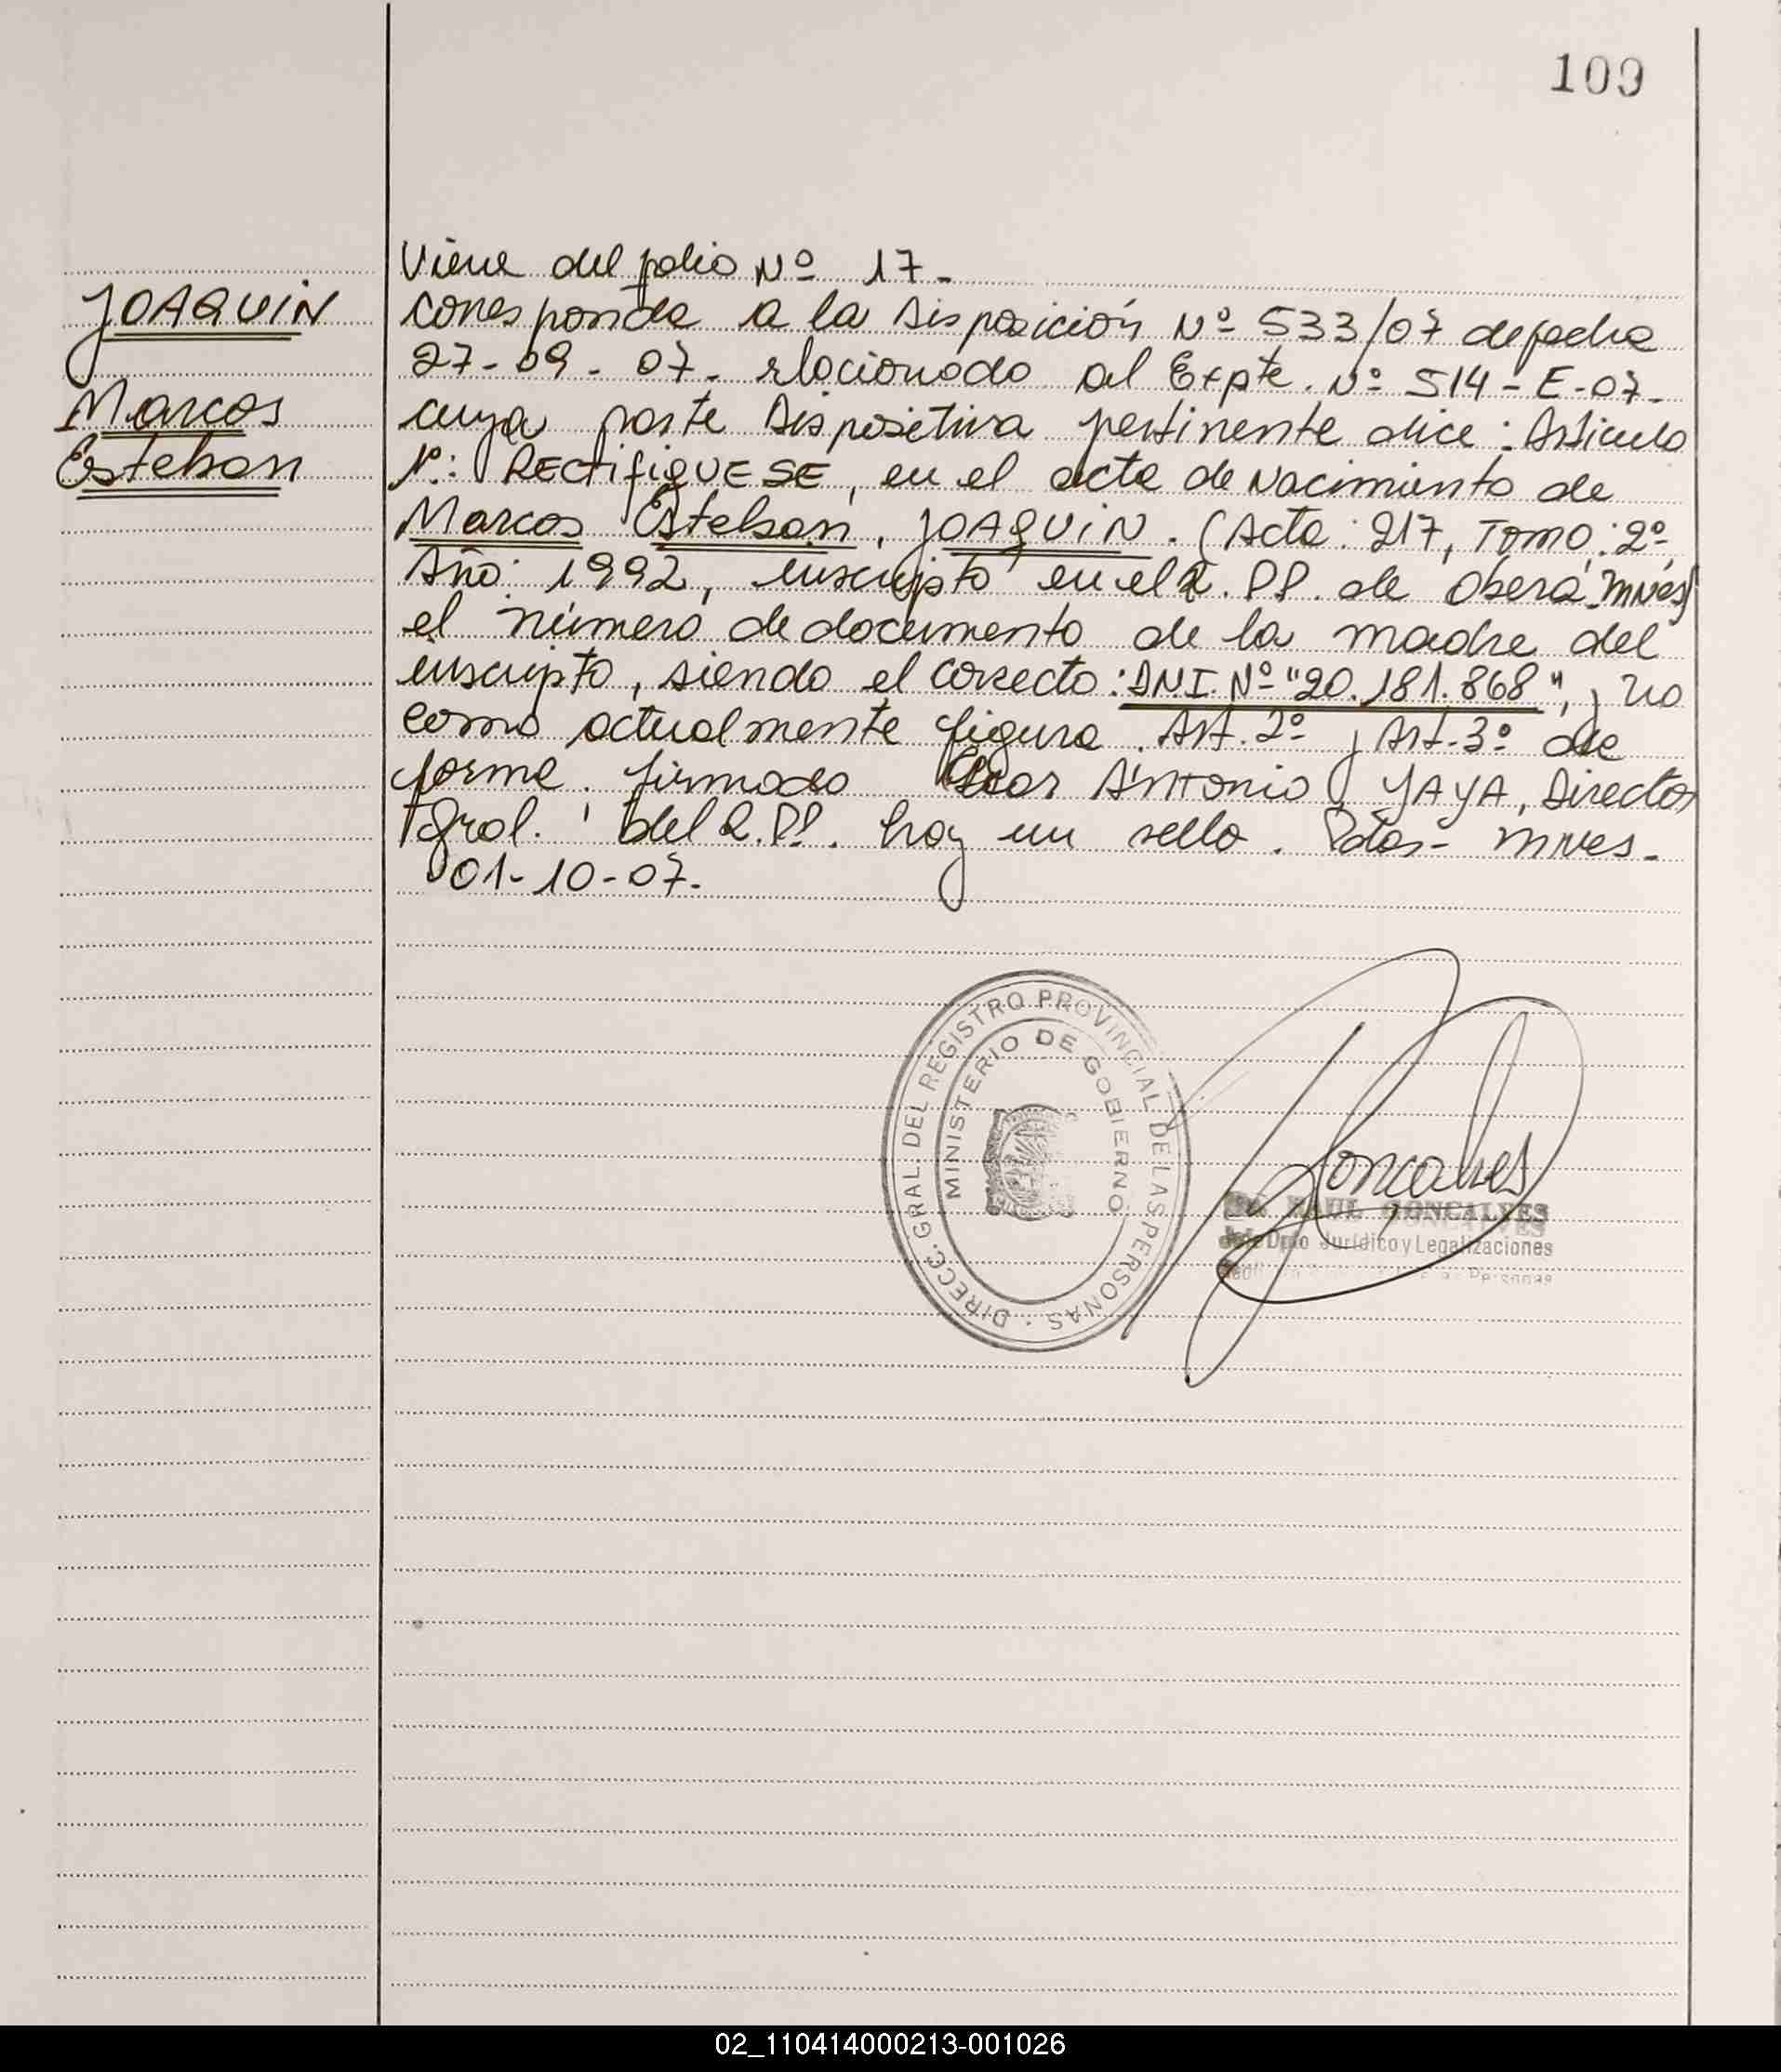 109
JOAQUIN
Marcos
Esteban
Viene del folio Nº 17-
corresponde a la Disposición Nº 533/07 de fecha
27-09-07- rlacionado al Expte. Nº 514-E-07-
cuya parte Dispositiva pertinente dice: Articulo
1º: RECTifiQUESE, en el acta de Nacimiento de
Marcos Esteban, JOAQUIN. (Acta: 217, Tomo: 2º
Año: 1992, inscripto en el R.PP. de Oberá Mnes)
el número de documento de la madre del
inscripto, siendo el correcto: DNI. Nº "20.181.868", y no
como actualmente figura. Art. 2º y Art. 3º de
forma. firmado Antonio YAYA, Director
Gral. del R.PP. hay un sello. Pdas- Mnes-
01-10-07-
DIRECC. GRAL. DEL REGISTRO PROVINCIAL DE LAS PERSONAS ·
MINISTERIO DE GOBIERNO
Goncalves
RAUL GONCALVES
Jefe Dpto Jurídico y Legalizaciones
Personas
02_110414000213-001026